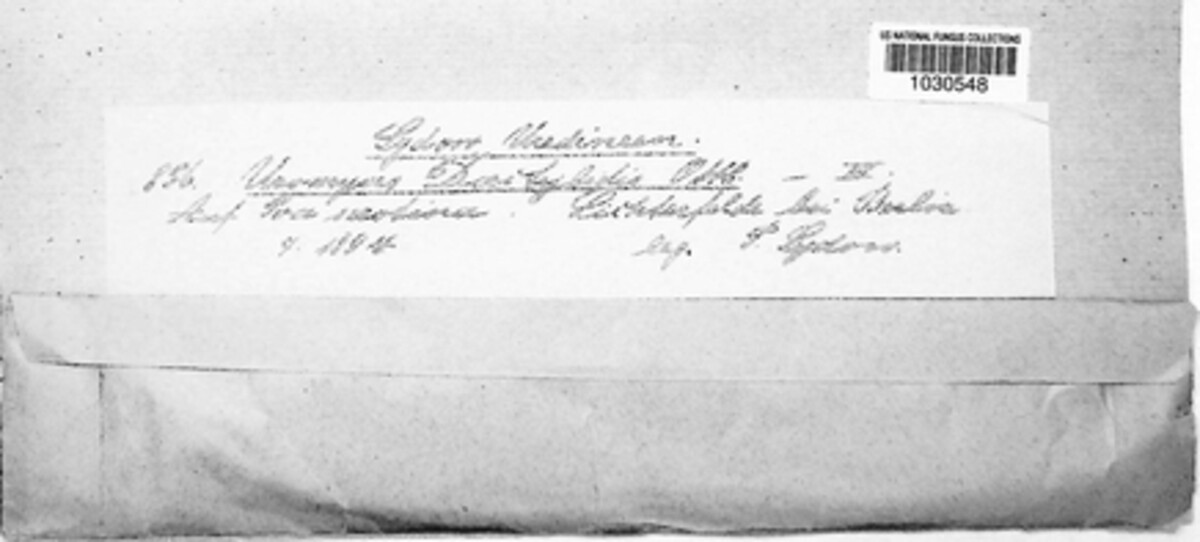 US NATIONAL FUNGUS COLLECTIONS
1030548
Sydow Uredineen.
856. Uromyces Dactylidis Otth — III.
Auf Poa serotina. Lichterfelde bei Berlin
9. 189
leg. P. Sydow.